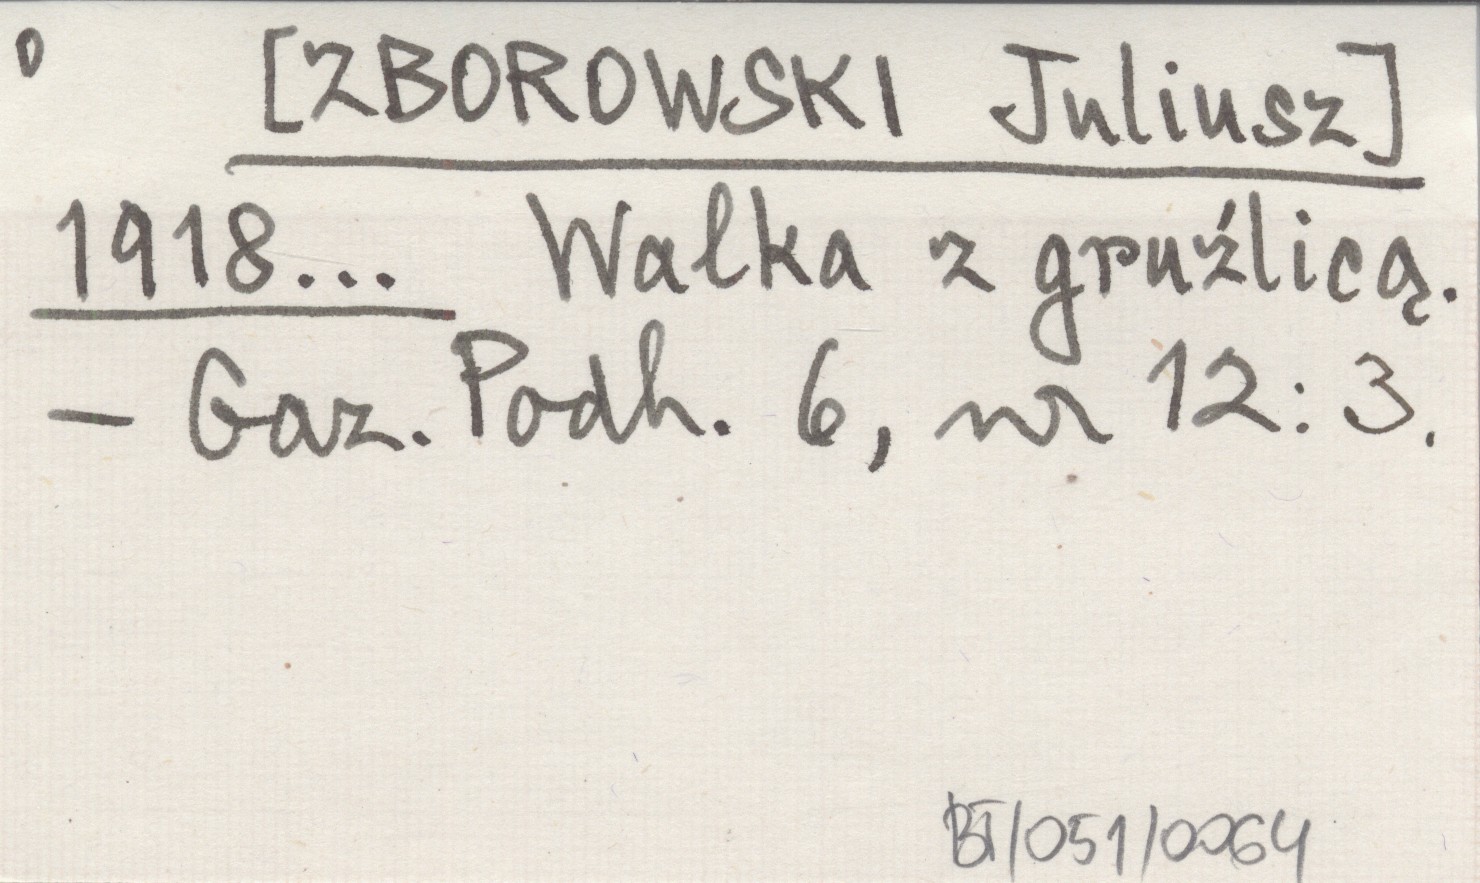 0 [ZBOROWSKI Juliusz]
1918... Walka z gruźlicą.
– Gaz. Podh. 6, nr 12: 3.
BT/051/0064